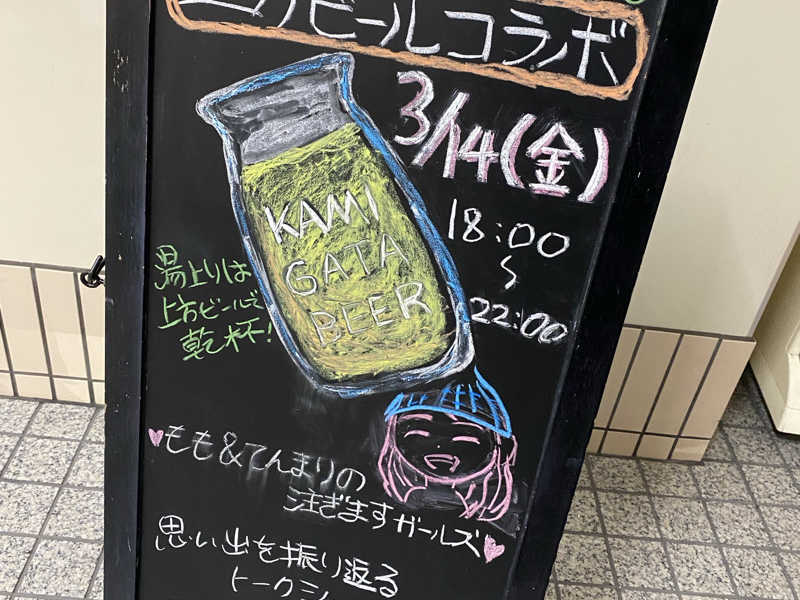 ビールコラボ
3/14(金)
18:00
〜
22:00
KAMI
GATA
BEER
湯上りは
上方ビールで
乾杯!
もも&てんまりの
注ぎますガールズ
思い出を振り返る
トークシ